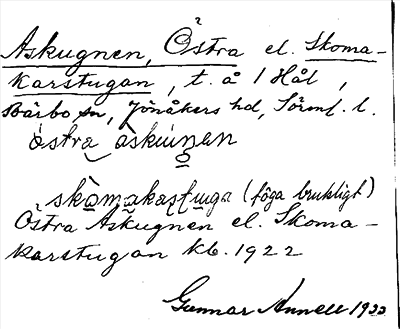 Askugnen, Östra el. Skoma-
karstugan, t. å 1 Hål,
Bärbo sn, Jönåkers hd, Sörml. l.
östra äskúnen
skòmakastuga (föga brukligt)
Östra Askugnen el. Skoma-
karstugan kb. 1922
Gunnar Annell 1933